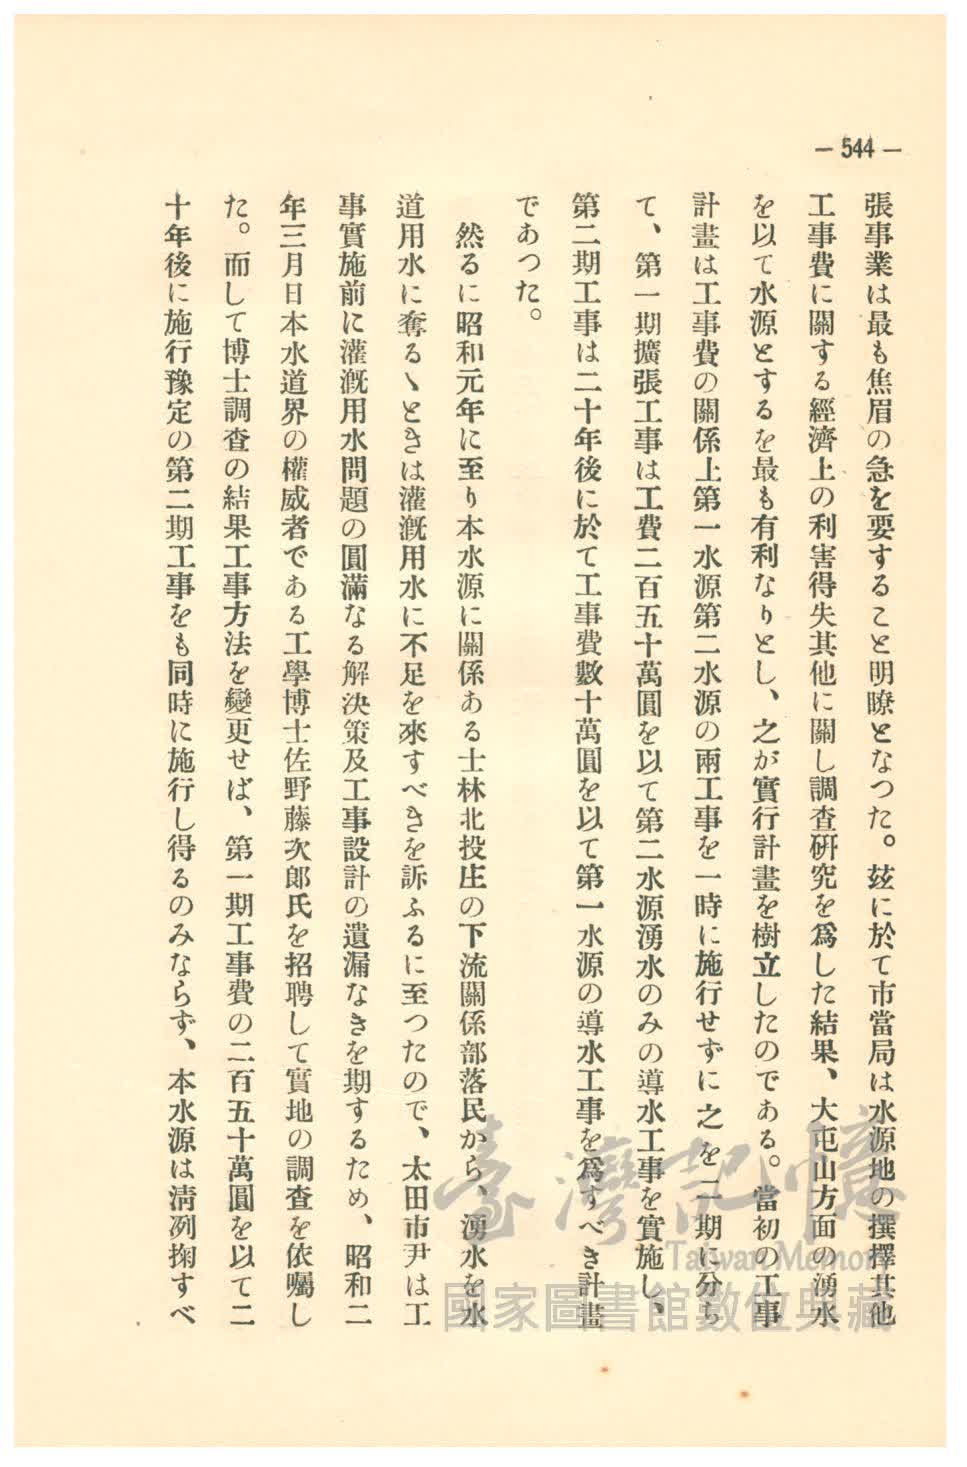 — 544 —
張事業は最も焦眉の急を要すること明瞭となつた。玆に於て市當局は水源地の撰擇其他
工事費に關する經濟上の利害得失其他に關し調査硏究を爲した結果、大屯山方面の湧水
を以て水源とするを最も有利なりとし、之が實行計畫を樹立したのである。當初の工事
計畫は工事費の關係上第一水源第二水源の兩工事を一時に施行せずに之を二期に分ち
て、第一期擴張工事は工費二百五十萬圓を以て第二水源湧水のみの導水工事を實施し、
第二期工事は二十年後に於て工事費數十萬圓を以て第一水源の導水工事を爲すべき計畫
であつた。
然るに昭和元年に至り本水源に關係ある士林北投庄の下流關係部落民から、湧水を水
道用水に奪るゝときは灌漑用水に不足を來すべきを訴ふるに至つたので、太田市尹は工
事實施前に灌漑用水問題の圓滿なる解決策及工事設計の遺漏なきを期するため、昭和二
年三月日本水道界の權威者である工學博士佐野藤次郎氏を招聘して實地の調査を依囑し
た。而して博士調査の結果工事方法を變更せば、第一期工事費の二百五十萬圓を以て二
十年後に施行豫定の第二期工事をも同時に施行し得るのみならず、本水源は淸冽掬すべ
臺灣記憶
Taiwan Memory
國家圖書館數位典藏